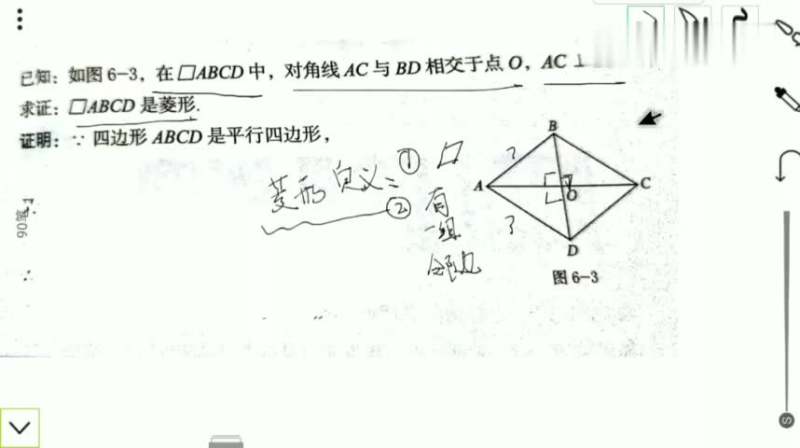 已知：如图6-3，在□ABCD中，对角线AC与BD相交于点O，AC⊥
求证：□ABCD是菱形.
证明：∵四边形ABCD是平行四边形，
菱形定义：① ▱
② 有
一组
B
?
A
O
C
?
D
图6-3
90笔